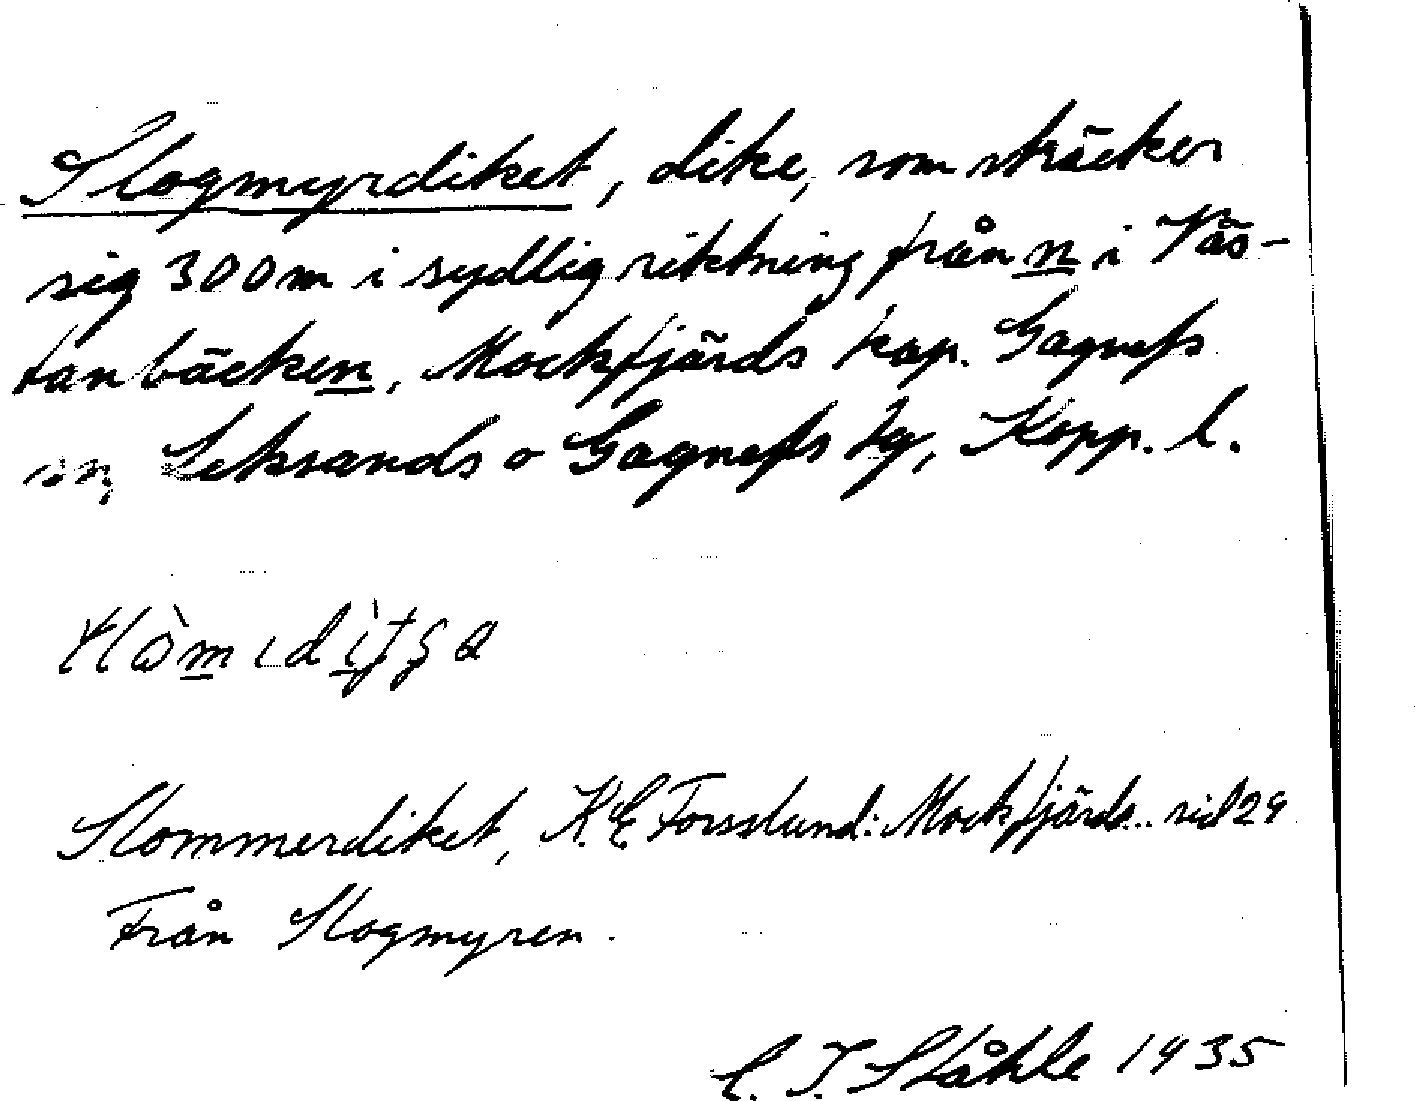 Slogmyrdiket, dike, som sträcker
sig 300 m i sydlig riktning från n i Väs-
tanbäcken, Mockfjärds kap. Gagnefs
sn, Leksands o Gagnefs tg, Kopp. l.
Slommerdiket, K.E Forsslund: Mockfjärds.. sid 29
Från Slogmyren.
C. I. Ståhle 1935